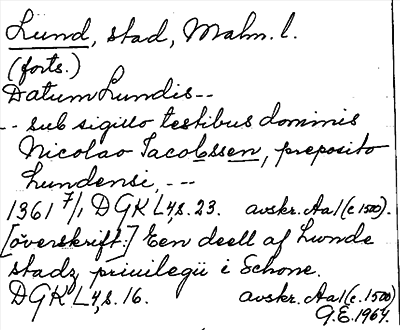 Lund, stad, Malm. l.
(forts.)
Datum Lundis --
-- sub sigillo testibus dominis
Nicolao Jacobssen, preposito
Lundensi, ---
1361 7/1 DGK L4, s. 23. avskr. Aa1 (c 1500).
[överskrift:] Een deell af Lunde
stadz priuilegii i Schone.
DGK L4, s. 16. avskr. Aa1 (c. 1500)
G.E. 1964.